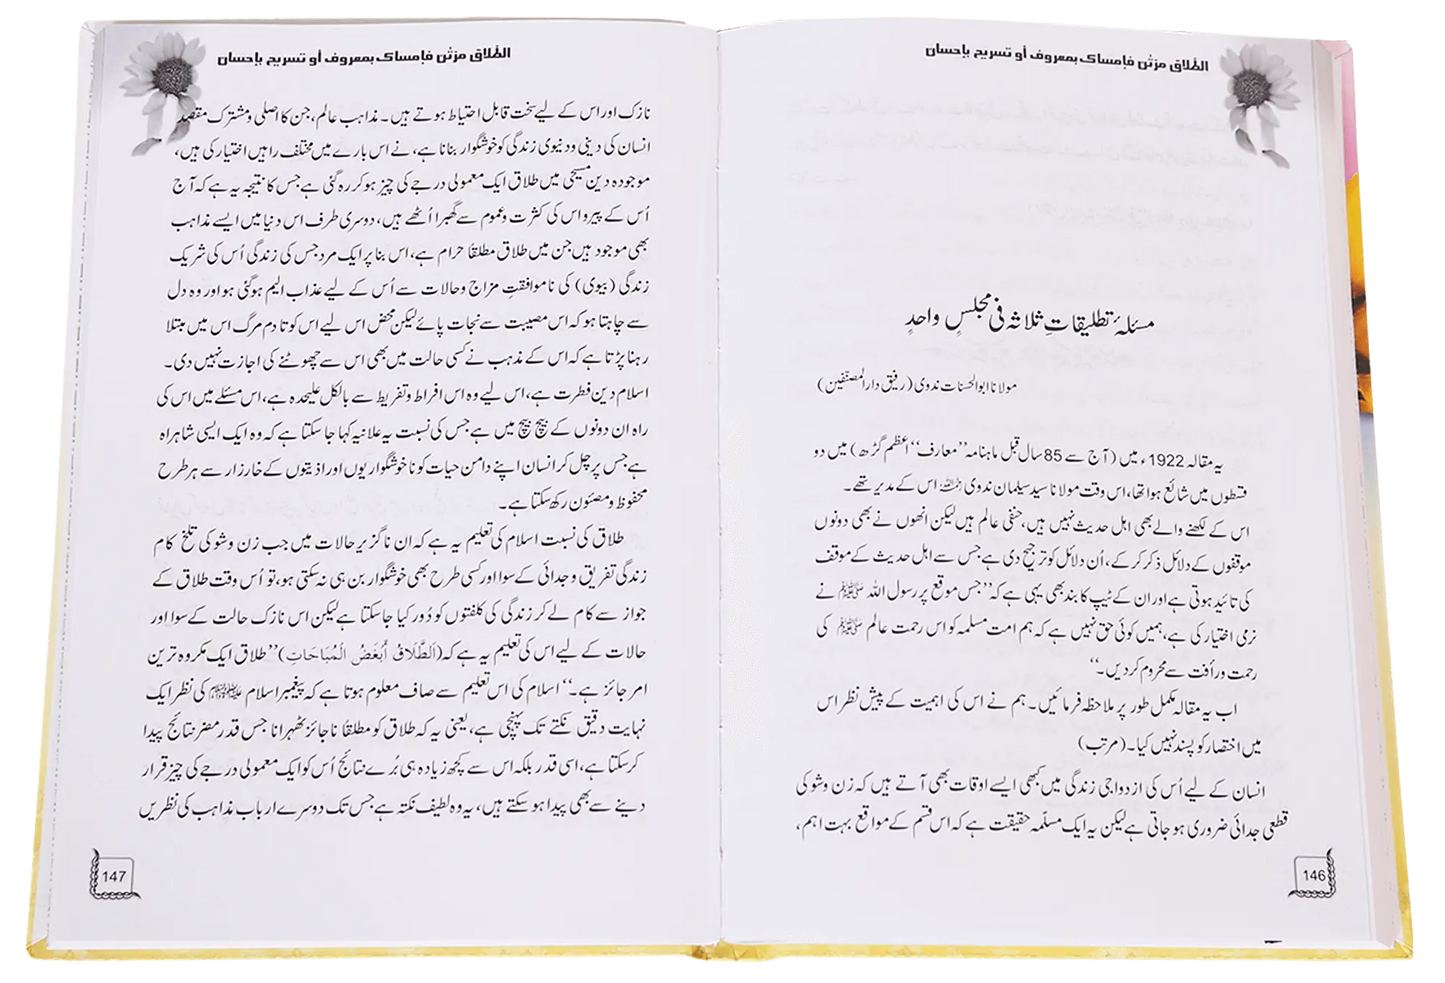 الطلاق مرتٰن فإمساک بمعروف أو تسریح بإحسان
مسئلہٴ تطلیقاتِ ثلاثہ فی مجلسٍ واحدٍ
مولانا ابوالحسنات ندوی (رفیق دارالمصنّفین)
یہ مقالہ 1922ء میں (آج سے 85 سال قبل ماہنامہ ”معارف“ اعظم گڑھ) میں دو
قسطوں میں شائع ہوا تھا، اس وقت مولانا سید سلیمان ندوی رحمہ اللہ اس کے مدیر تھے۔
اس کے لکھنے والے بھی اہل حدیث نہیں ہیں، حنفی عالم ہیں لیکن انھوں نے بھی دونوں
موقفوں کے دلائل ذکر کرکے، اُن دلائل کو ترجیح دی ہے جس سے اہل حدیث کے موقف
کی تائید ہوتی ہے اور ان کے ٹیپ کا بند بھی یہی ہے کہ ”جس موقع پر رسول اللہ ﷺ نے
نرمی اختیار کی ہے، ہمیں کوئی حق نہیں ہے کہ ہم امت مسلمہ کو اس رحمت عالم ﷺ کی
رحمت و رأفت سے محروم کردیں۔“
اب یہ مقالہ مکمل طور پر ملاحظہ فرمائیں۔ ہم نے اس کی اہمیت کے پیش نظر اس
میں اختصار کو پسند نہیں کیا۔ (مرتب)
انسان کے لیے اُس کی ازدواجی زندگی میں کبھی ایسے اوقات بھی آتے ہیں کہ زن و شو کی
قطعی جدائی ضروری ہو جاتی ہے لیکن یہ ایک مسلّمہ حقیقت ہے کہ اس قسم کے مواقع بہت اہم،
146
الطلاق مرتٰن فإمساک بمعروف أو تسریح بإحسان
نازک اور اس کے لیے سخت قابل احتیاط ہوتے ہیں۔ مذاہب عالم، جن کا اصلی و مشترک مقصد
انسان کی دینی و دنیوی زندگی کو خوشگوار بنانا ہے، نے اس بارے میں مختلف راہیں اختیار کی ہیں،
موجودہ دین مسیحی میں طلاق ایک معمولی درجے کی چیز ہو کر رہ گئی ہے جس کا نتیجہ یہ ہے کہ آج
اُس کے پیرو اس کی کثرت و عموم سے گھبرا اُٹھے ہیں، دوسری طرف اس دنیا میں ایسے مذاہب
بھی موجود ہیں جن میں طلاق مطلقا حرام ہے، اس بنا پر ایک مرد جس کی زندگی اُس کی شریک
زندگی (بیوی) کی ناموافقتِ مزاج و حالات سے اُس کے لیے عذاب الیم ہوگئی ہو اور وہ دل
سے چاہتا ہو کہ اس مصیبت سے نجات پائے لیکن محض اس لیے اس کو تا دم مرگ اس میں مبتلا
رہنا پڑتا ہے کہ اس کے مذہب نے کسی حالت میں بھی اس سے چھوٹنے کی اجازت نہیں دی۔
اسلام دین فطرت ہے، اس لیے وہ اس افراط و تفریط سے بالکل علیحدہ ہے، اس مسئلے میں اس کی
راہ ان دونوں کے بیچ بیچ میں ہے جس کی نسبت یہ علانیہ کہا جاسکتا ہے کہ وہ ایک ایسی شاہراہ
ہے جس پر چل کر انسان اپنے دامن حیات کو ناخوشگواریوں اور اذیتوں کے خارزار سے ہر طرح
محفوظ و مصئون رکھ سکتا ہے۔
طلاق کی نسبت اسلام کی تعلیم یہ ہے کہ ان ناگزیر حالات میں جب زن و شو کی تلخ کام
زندگی تفریق و جدائی کے سوا اور کسی طرح بھی خوشگوار بن ہی نہ سکتی ہو، تو اُس وقت طلاق کے
جواز سے کام لے کر زندگی کی کلفتوں کو دُور کیا جاسکتا ہے لیکن اس نازک حالت کے سوا اور
حالات کے لیے اس کی تعلیم یہ ہے کہ (اَلطَّلَاقُ أَبْغَضُ الْمُبَاحَاتِ) ”طلاق ایک مکروہ ترین
امر جائز ہے۔“ اسلام کی اس تعلیم سے صاف معلوم ہوتا ہے کہ پیغمبر اسلام ﷺ کی نظر ایک
نہایت دقیق نکتے تک پہنچی ہے، یعنی یہ کہ طلاق کو مطلقا ناجائز ٹھہرانا جس قدر مضر نتائج پیدا
کرسکتا ہے، اسی قدر بلکہ اس سے کچھ زیادہ ہی بُرے نتائج اُس کو ایک معمولی درجے کی چیز قرار
دینے سے بھی پیدا ہو سکتے ہیں، یہ وہ لطیف نکتہ ہے جس تک دوسرے ارباب مذاہب کی نظریں
147